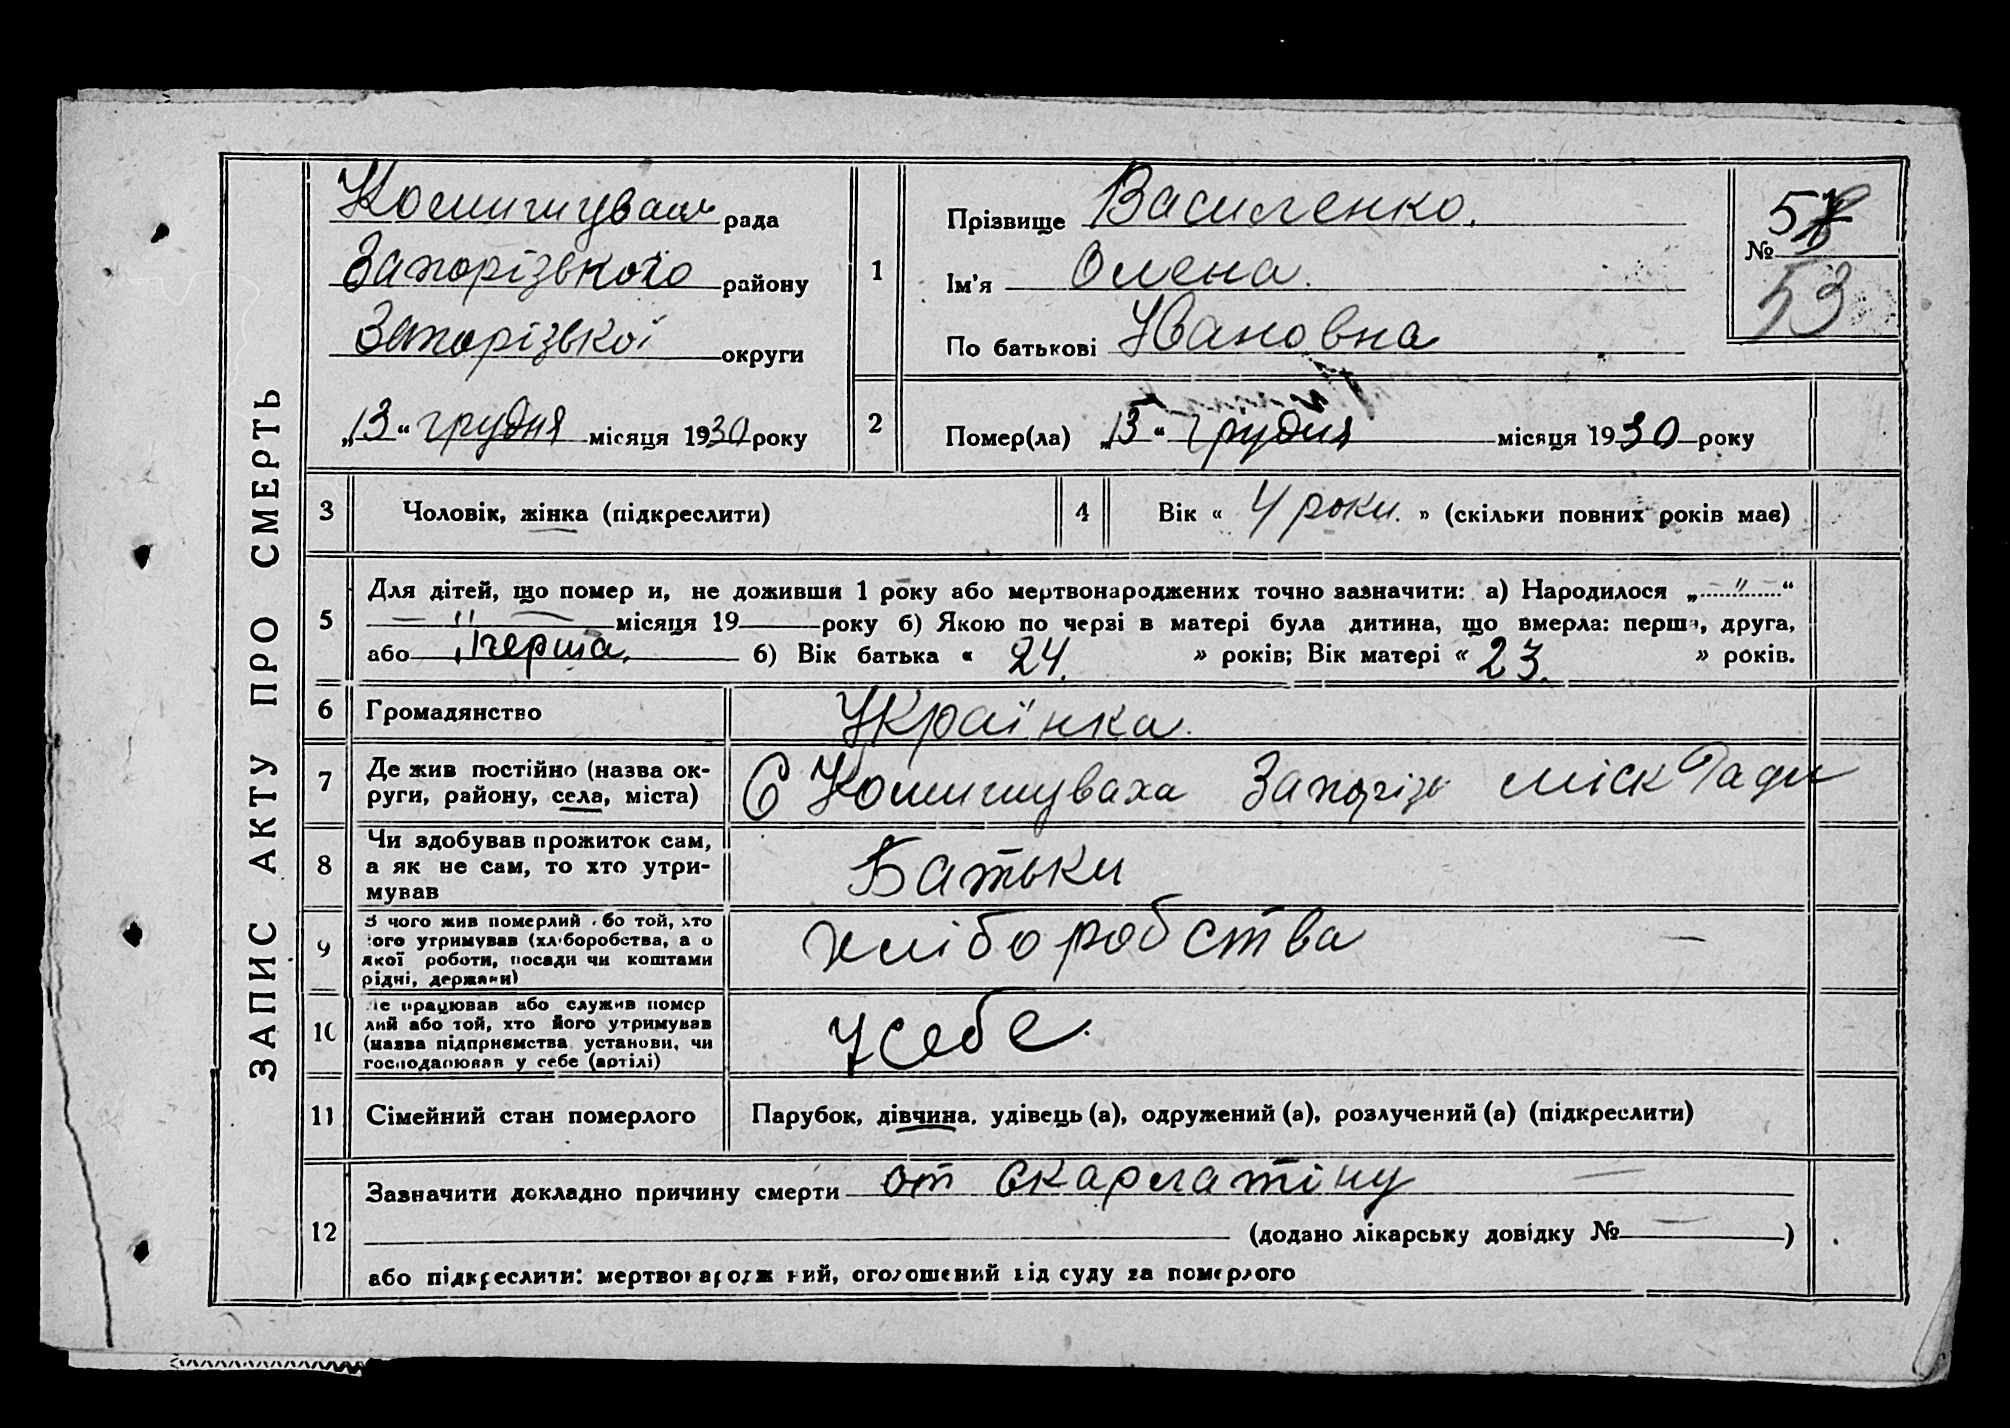 ЗАПИС АКТУ ПРО СМЕРТЬ
Комишуваськ рада
Запорізького району
Запорізької округи
„13“ грудня місяця 1930 року
1
Прізвище Василенко.
Ім'я Олена.
По батькові Ивановна
№ 53
2
Помер(ла) „13“ грудня місяця 1930 року
3 Чоловік, жінка (підкреслити)
4 Вік « 4 роки. » (скільки повних років має)
5
Для дітей, що померли, не доживши 1 року або мертвонароджених точно зазначити: а) Народилося „ " “
" місяця 19 року б) Якою по черзі в матері була дитина, що вмерла: перша, друга,
або перша. б) Вік батька « 24. » років; Вік матері « 23. » років.
6 Громадянство Українка.
7 Де жив постійно (назва ок-
руги, району, села, міста) С Комишуваха Запоріз міск Ради
8 Чи здобував прожиток сам,
а як не сам, то хто утри-
мував Батьки
9 З чого жив померлий або той, хто
його утримував (хліборобства, а о
якої роботи, посади чи коштами
рідні, держави) хліборобства
10 Де працював або служив помер
лий або той, хто його утримував
(назва підприємства установи, чи
господарював у себе (артілі) У себе.
11 Сімейний стан померлого Парубок, дівчина, удівець (а), одружений (а), розлучений (а) (підкреслити)
12
Зазначити докладно причину смерти от скарлатіну
(додано лікарську довідку № — )
або підкреслити: мертвонароджений, оголошений від суду за померлого